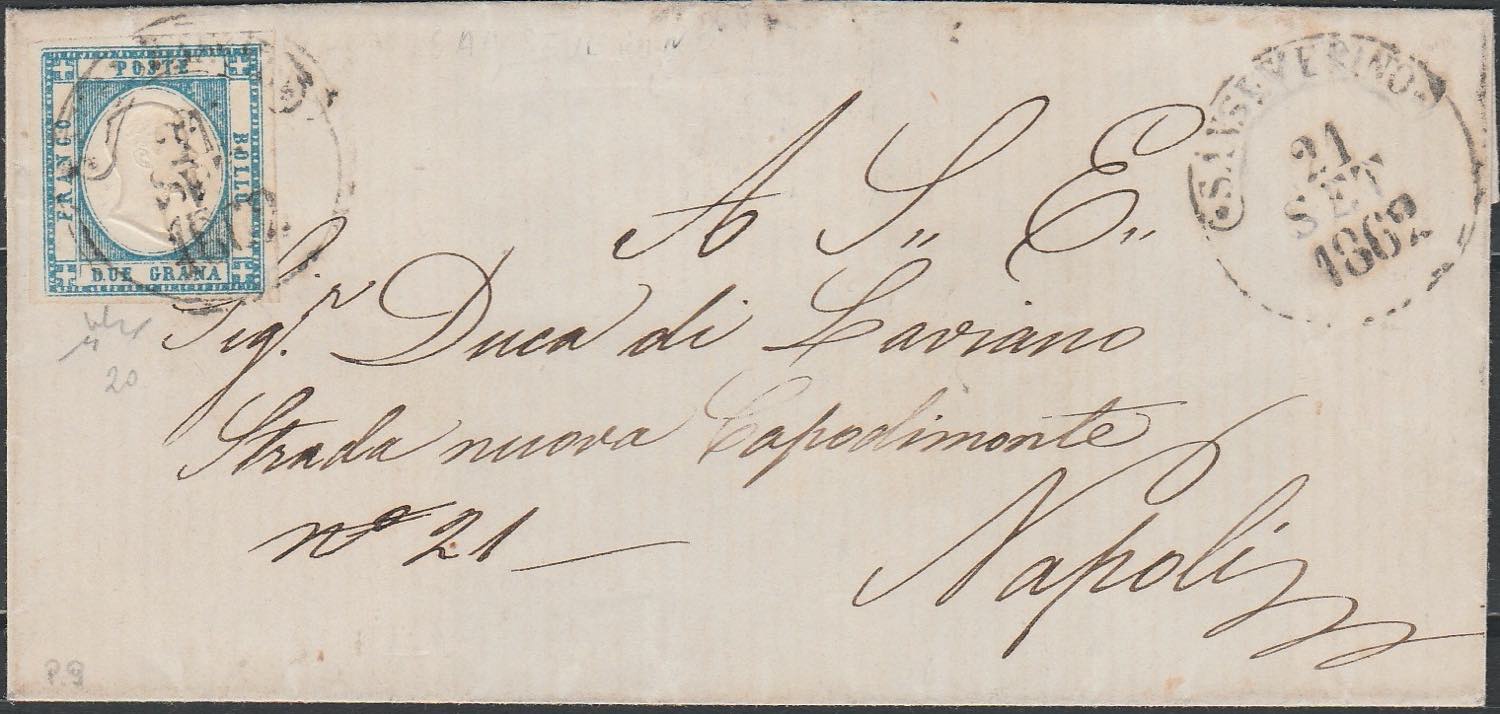 POSTE
FRANCO
BOLLO
DUE GRANA
SANSEVERINO
21
SET
1862
A S,, E,,
Sig.r Duca di Laviano
Strada nuova Capodimonte
n° 21
Napoli
20
P.9